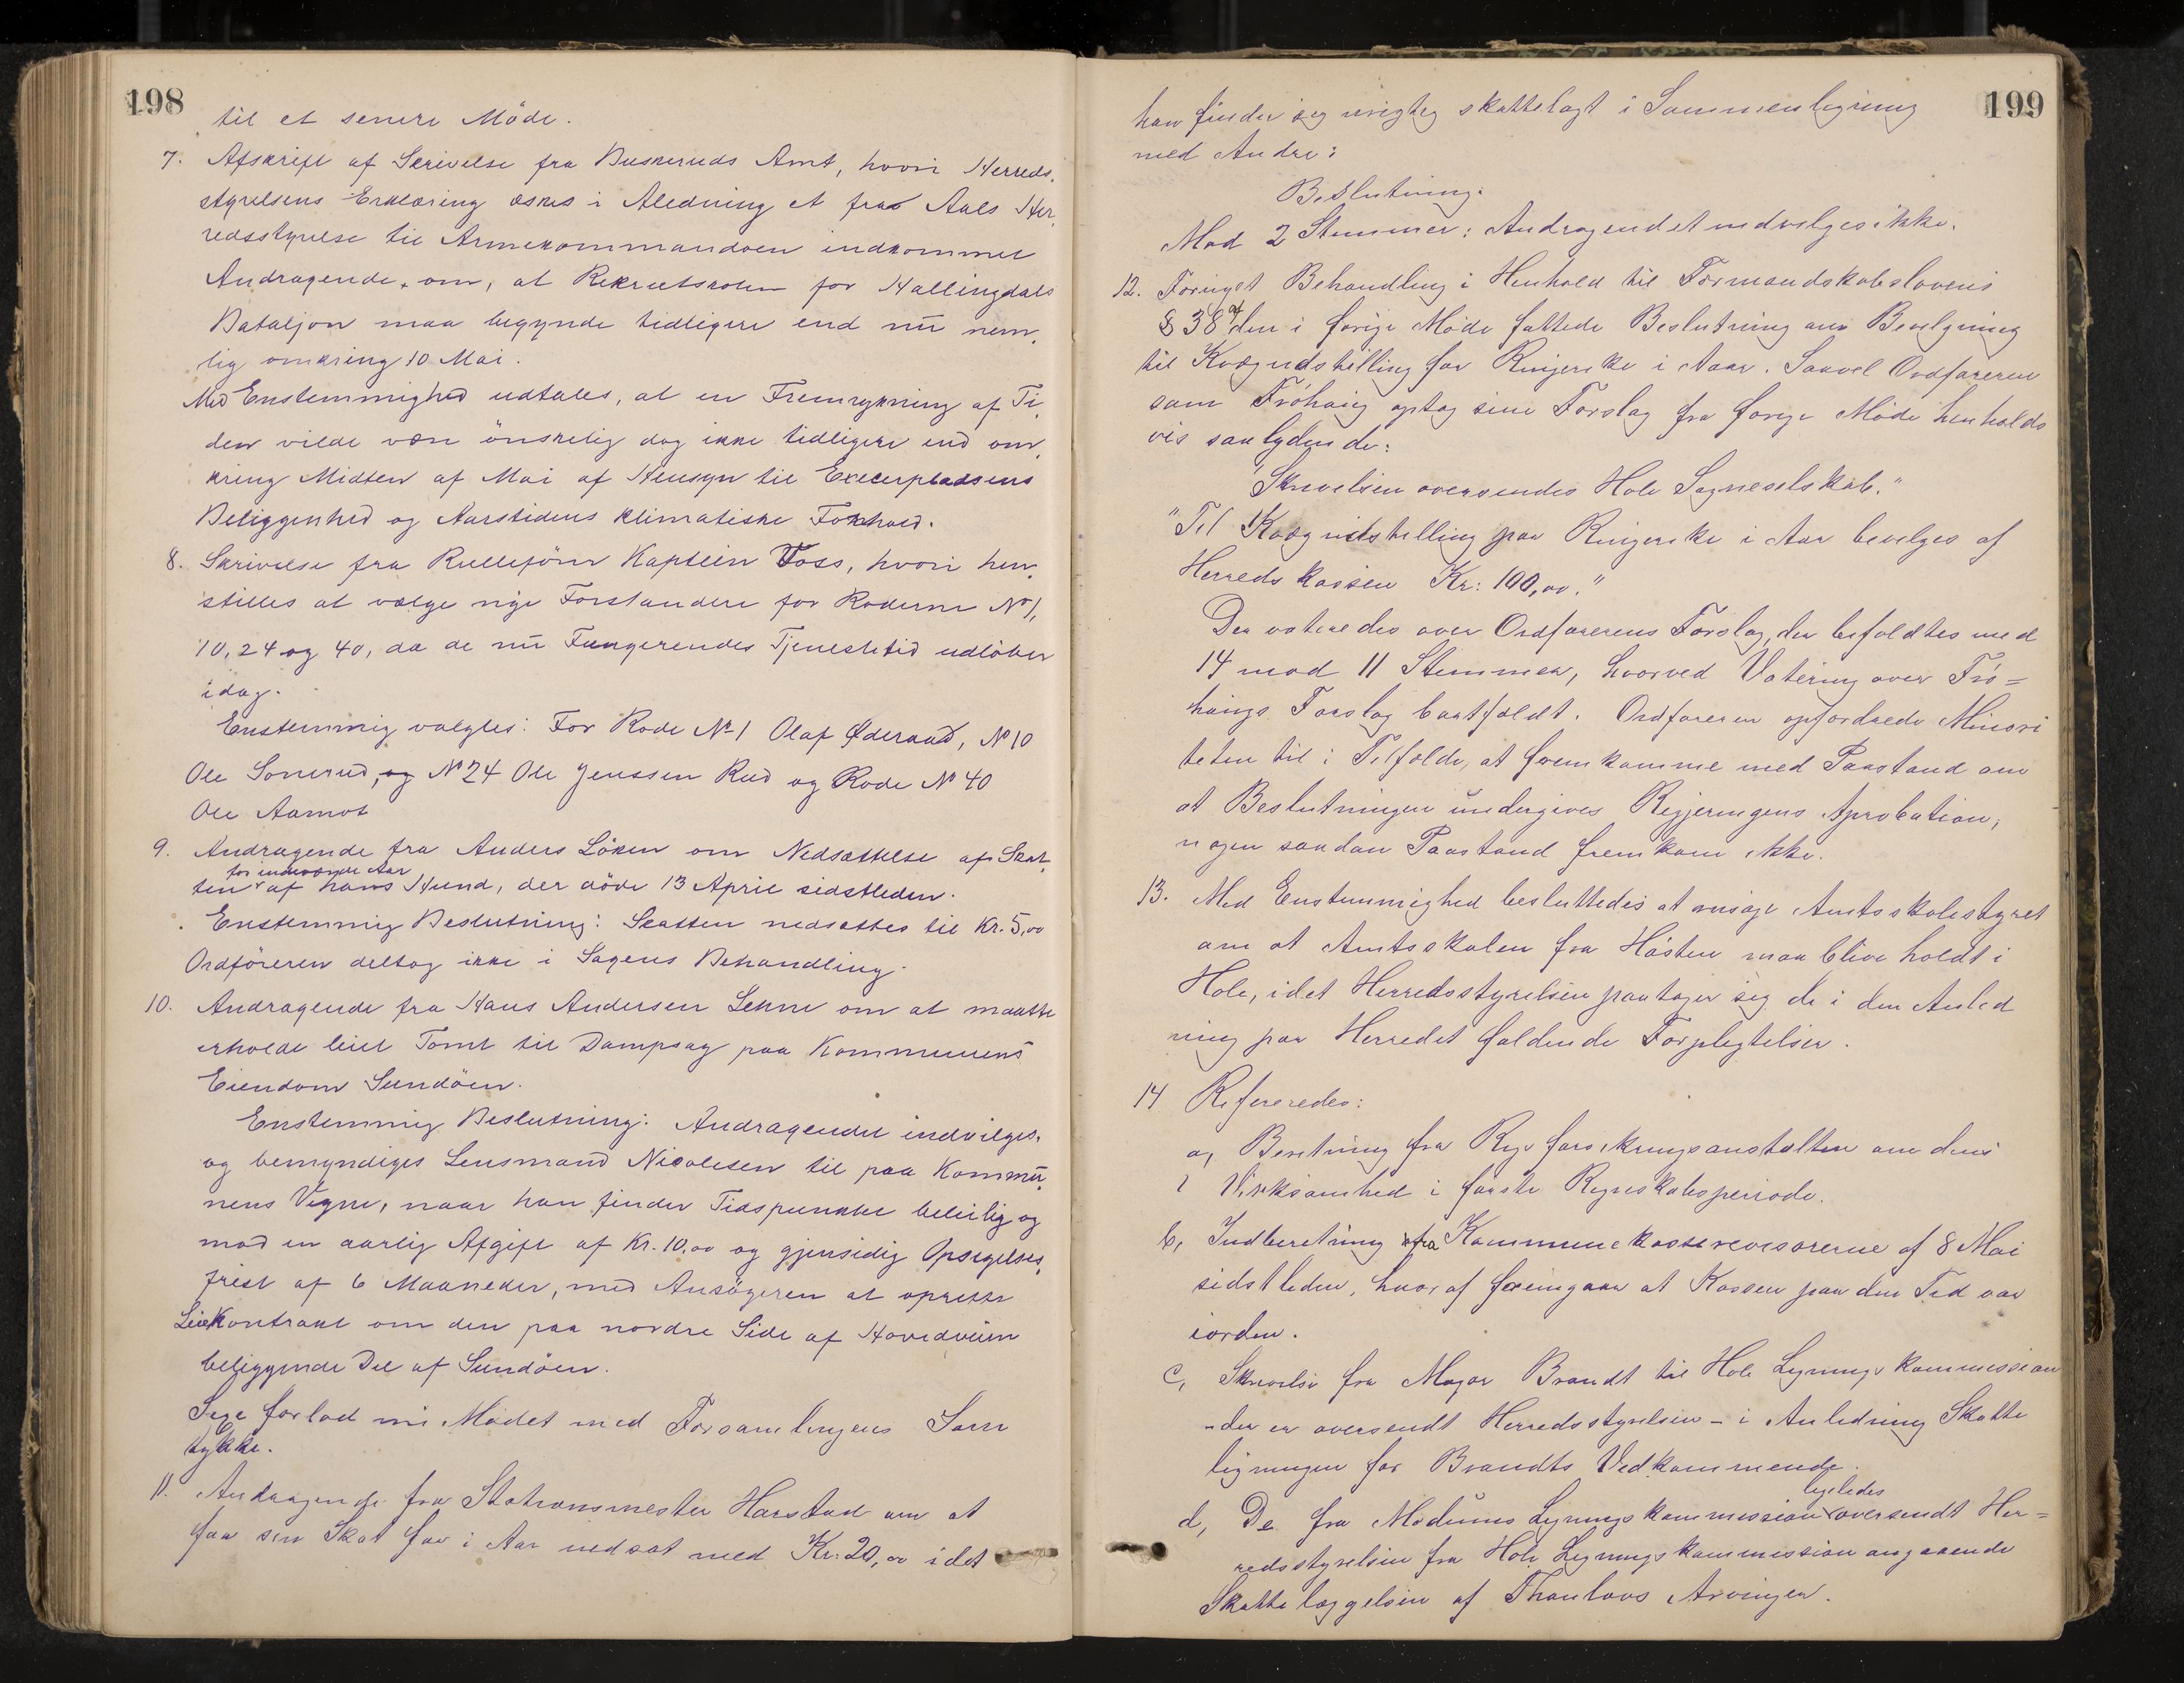 198
til et senere Möde.
7. Afskrift af Skrivelse fra Buskeruds Amt, hvori Herreds,
styrelsens Erklæring æskes i Aledning et fra Aals Her,
redsstyrelse til Armekommandoen indkommet
Andragende, om, at Rekrutskolen for Hallingdals
Bataljon maa begynde tidligere end nu nem,
lig omkring 10 Mai.
Med Enstemmighed udtales, at en Fremrykning af Ti,
den vilde være önskelig dog ikke tidligere end om,
kring Midten af Mai af Hensyn til Excerpladsens
Beliggenhed og Aarstidens klimatiske Forhold.
8. Skrivelse fra Rulleförer Kaptein Foss, hvori hen,
stilles at vælge nye Forstandere for Roderne No 1,
10, 24 og 40, da de nu Fungerendes Tjenestetid udlöber
idag.
Enstemmig valgtes: For Rode No 1 Olaf Öderaad, No 10
Ole Sonerud, og No 24 Ole Jenssen Rud og Rode No 40
Ole Aamot
9. Andragende fra Anders Löken om Nedsættelse af Skat,
for indeværende Aar
ten af hans Hund, der döde 13 April sidstleden.
Enstemmig Beslutning: Skatten nedsættes til Kr. 5,00
Ordföreren deltog ikke i Sagens Behandling.
10. Andragende fra Hans Andersen Lehne om at maatte
erholde leiet Tomt til Dampsag paa Kommunens
Eiendom Sundöen.
Enstemmig Beslutning: Andragendet indvilges,
og bemyndiges Lensmand Nicolesen til paa Kommu,
nens Vegne, naar han finder Tidspunktet beleilig og
mod en aarlig Afgift af Kr. 10,00 og gjensidig Opsigelses,
frist af 6 Maaneder, med Ansögeren at oprette
Leiekontrakt om den paa nordre Side af Hovedveien
beliggende Del af Sundöen.
forlod nu Mödet med Forsamlingens Sam
tykke.
11. Andragende fra Stationsmester Harstad om at
faa sin Skat for i Aar nedsat med Kr. 20,00 idet
199
han finder sig urigtig skattelagt i Sammenligning
med Andre:
Beslutning:
Mod 2 Stemmer: Andragendet indvilges ikke.
12. Fornyet Behandling i Henhold til Formandskabslovens
§ 38 af den i forige Möde fattede Beslutning om Bevilgning
til Kvægudstilling for Ringerike i Aar. Saavel Ordföreren
som Fröhaug optog sine Forslag fra forige Möde henholds
vis saalydende:
"Skrivelsen oversendes Hole Sogneselskab."
"Til Kvægudstilling paa Ringerike i Aar bevilges af
Herredskassen Kr: 100,00."
Der voteredes over Ordförerens Forslag, der befoldtes med
14 mod 11 Stemmer, hvorved Votering over Frö=
haugs Forslag bortfoldt. Ordföreren opfordrede Minori
teten til i Tilfælde, at fremkomme med Paastand om
at Beslutningen undergives Regjeringens Aprobation;
nogen saadan Paastand fremkom ikke.
13. Med Enstemmighed besluttedes at ansöge Amtsskolestyret
om at Amtsskolen fra Hösten maa blive holdt i
Hole, idet Herredsstyrelsen paatager sig de i den Anled
ning paa Herredet faldende Forpligtelser.
14 Refereredes:
a, Beretning fra Rigsforsikringsanstalten om dens
Virksomhed i förste Regnskabsperiode.
b, Indberetning fra Kommunekasserevisorerne af 8 Mai
sidstleden, hvoraf fremgaar at Kassen paa den Tid var
iorden.
c, Skrivelse fra Major Brandt til Hole Ligningskommission
- der er oversendt Herredsstyrelsen - i Anledning Skatte
ligningen for Brandts Vedkommende.
ligeledes
d, De fra Modums Ligningskommission oversendt Her=
redsstyrelsen fra Hole Ligningskommission angaaende
Skattelæggelsen af Thaulows Arvinger.